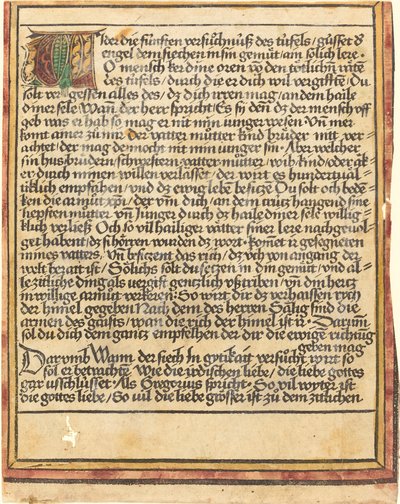 Wider die fünfften versůchnuß des tüfels / gusset d'
engel dem siechen in sin gemüt / ain solich lere ·
O mensch ker dine oren vō den tötlichn̄ räte
des tüfels / durch die er dich wil vergifftē · Du
solt vergessen alles des / dz dich irren mag / an dem haile
diner sele Wañ der herr spricht / Es sy deñ dz der mensch off
geb was er hab so mag er nit min iunger wesen · Vñ wer
komt zů mir der vatter můtter kind brüder nitt ver=
achtet / der mag dennocht nit min iunger sin · Aber welcher
sin hus / brüdern / schwestern vatter můtter / wib / kind / oder äk=
er durch minen willen verlasset / der wirt es hundertual=
tiklich empfahen / vnd dz ewig lebē besitzē Du solt och bedē=
ken die armůt xp̄i / der vm dich / an dem crütz hangend sine
liepsten můtter / vñ Junger durch dz haile diner sele willig=
klich verließ Och so vil hailiger vätter siner lere nachgeuol=
get habent / dz si hörren wurden dz wort · Komet ir gesegneten
mines vatters / vñ besitzent das rich / dz üch von angang der
welt beraitt ist / Sölichs solt du setzen in din gemüt / vnd al=
le zittliche ding als vergift gentzlich vßtriben / vñ din hertz
in willige armůt verkeren · So wirt dir dz verhaissen rych
der himel gegeben Nach dem des herren Sälig sind die
armen des gaists / wan die rich der himel ist ir · Darum̄
sol du dich dem gantz empfelhen der dir die ewige richtūg
geben mag
Darumb Wann der siech In gytikait versůcht wirt so
sol er betrachtē Wie die irdischen liebe / die liebe gottes
gar usschlusset · Als Gregorius spricht · So vil wyter ist
die gottes liebe / So vil die liebe grösser ist zů dem zitlichen